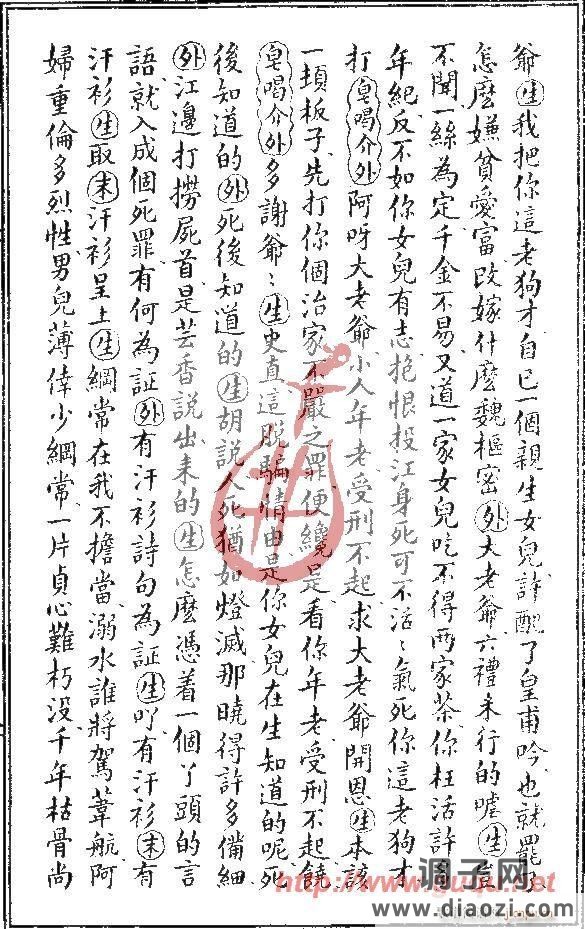 爺生我把你這老狗才自己一個親生女兒許配了皇甫吟也就罷了
怎麼嫌貧愛富改嫁什麼魏樞密外大老爺六禮未行的嘘生豈
不聞一絲為定千金不易又道一家女兒吃不得兩家茶你枉活許
年紀反不如你女兒有志抱恨投江身死可不活〻氣死你這老狗才
打皂喝介外阿呀大老爺小人年老受刑不起求大老爺開恩生本該
一頓板子先打你個治家不嚴之罪便纔是看你年老受刑不起饒
皂喝介外多謝爺〻生史直這脫騙情由是你女兒在生知道的呢死
後知道的外死後知道的生胡說人死猶如燈滅那曉得許多備細
外江邊打撈屍首是芸香說出来的生怎麼憑着一個丫頭的言
語就入成個死罪有何為証外有汗衫詩句為証生吖有汗衫末有
汗衫生取末汗衫呈上生綱常在我不擔當溺水誰將駕葦航阿
婦重倫多烈性男兒薄倖少綱常一片貞心難朽没千年枯骨尚
http://www.guqu.net
调子网
www.diaozi.com